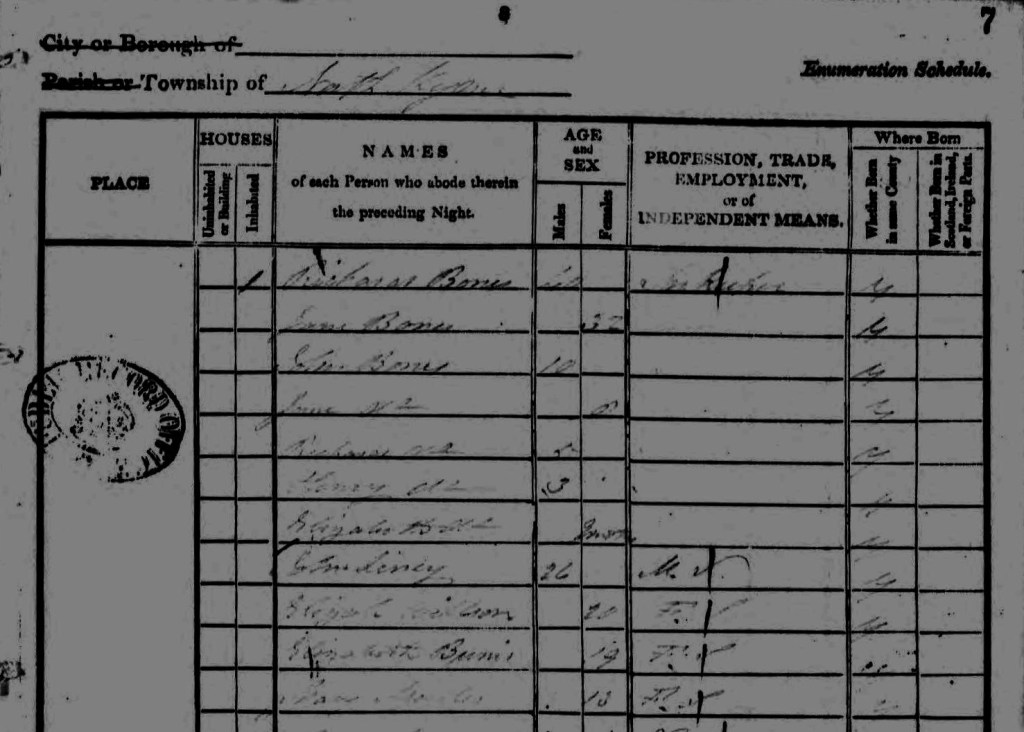 7
City or Borough of
Parish or Township of North Kyme
Enumeration Schedule.
PLACE
HOUSES
Uninhabited or Building
Inhabited
NAMES
of each Person who abode therein
the preceding Night.
AGE and SEX
Males
Females
PROFESSION, TRADE,
EMPLOYMENT,
or of
INDEPENDENT MEANS.
Where Born
Whether Born in same County
Whether Born in Scotland, Ireland, or Foreign Parts.
1 Richard Bones 40 Y
Jane Bones 32 Y
John Bones 10 Y
Jane Do Y
Richard Do 5 Y
Henry Do 3 Y
Elizabeth Do Y
John 26 M. S. Y
20 F. S. Y
Elizabeth 19 F. S.
13 F. S. Y
PUBLIC RECORD OFFICE